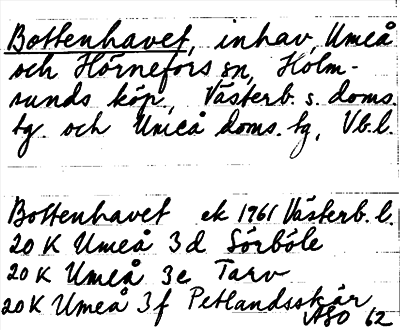 Bottenhavet, inhav, Umeå
och Hörnefors sn, Holm-
sunds köp, Västerb. s. doms.
tg. och Umeå doms. tg, Vb. l.
Bottenhavet ek 1961 Västerb. l.
20 K Umeå 3d Sörböle
20 K Umeå 3e Tarv
20 K Umeå 3f Petlandsskär
ASO 62